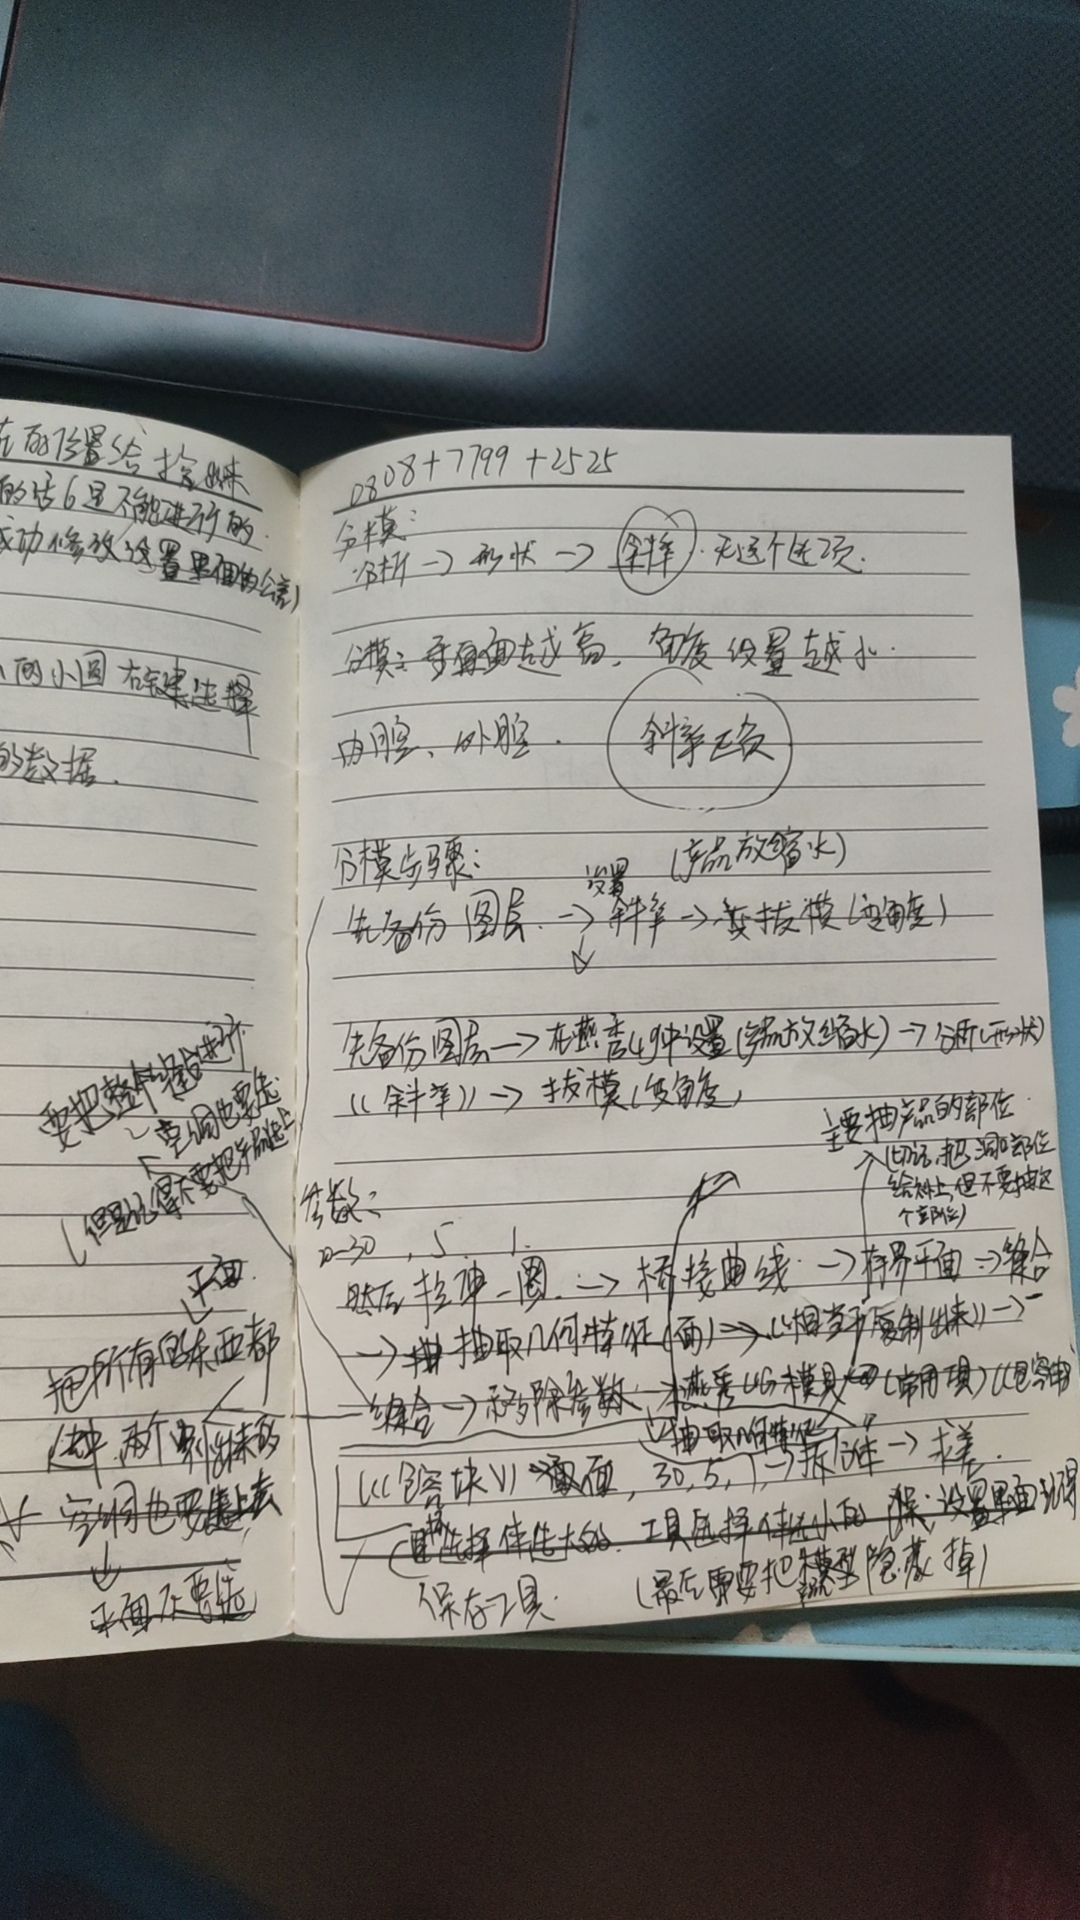 的位置给
的话6是不能进行的.
成功修改设置里面的公差)
的小圆右键选择
的数据.
要把整个缝合进行
空洞也要选
(但是记得不要把
平面
把所有的东西都
选中.两个
空洞也要选上去
平面不要选
0808+7799+2525
分模:
分析→形状→斜率.无这个选项.
分模:垂直面越高,角度设置越小.
内腔、外腔. 斜率正负
分模步骤: (产品放缩水)
设置
先备份图层.→斜率→要拔模(变角度)
先备份图层→在燕秀UG中设置(产品放缩水)→分析(形状)
((斜率))→拔模(变角度)
主要抽产品的部位.
把洞口部位
给补上,但不要抽这
个部位)
参数:
20-30,5.1.
然后拉伸一圈.→桥接曲线.→有界平面→缝合
→抽取几何特征(面)→((相当于复制出来))→
缝合→移除参数→燕秀UG模具(常用项)((包容块
抽取几何特征
((包容块))面,30,5,1→拆分体→求差.
目标选择体选大的.工具选择体选小的 设置里面记得
保存工具. (最后需要把模型隐藏掉)